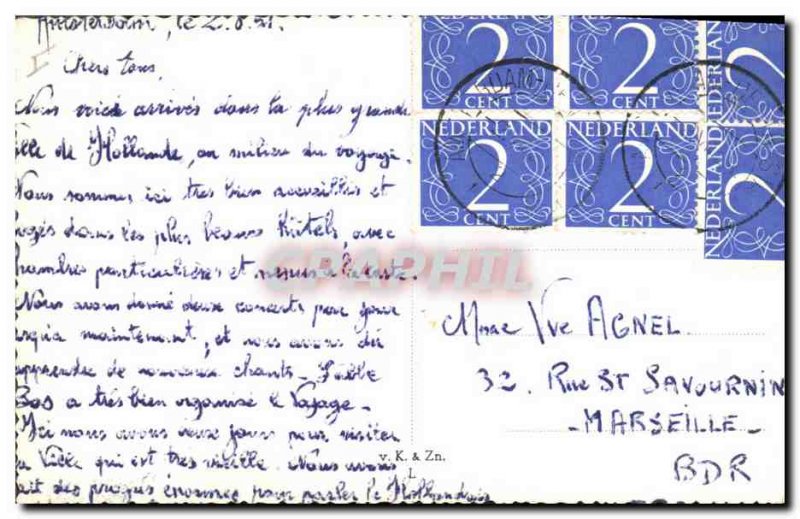 Amsterdam, le 2.8.51.
Chers tous,
Nous voici arrivés dans la plus grande
ville de Hollande, au milieu du voyage.
Nous sommes ici très bien accueillis et
logés dans les plus beaux Hôtels, avec
chambres particulières et menus à la carte.
Nous avons donné deux concerts par jour
jusqu'à maintenant, et nous avons dû
apprendre de nouveaux chants.
Bos a très bien organisé le Voyage -
Ici nous avons deux jours pour visiter
la Ville qui est très vieille. Nous avons
fait des progrès énormes pour parler le Hollandais
NEDERLAND
2
CENT
NEDERLAND
2
CENT
NEDERLAND
2
NEDERLAND
2
CENT
NEDERLAND
2
CENT
NEDERLAND
2
CPAPHIL
Mme Vve AGNEL
32, Rue ST SAVOURNIN
- MARSEILLE -
BDR
v. K. & Zn.